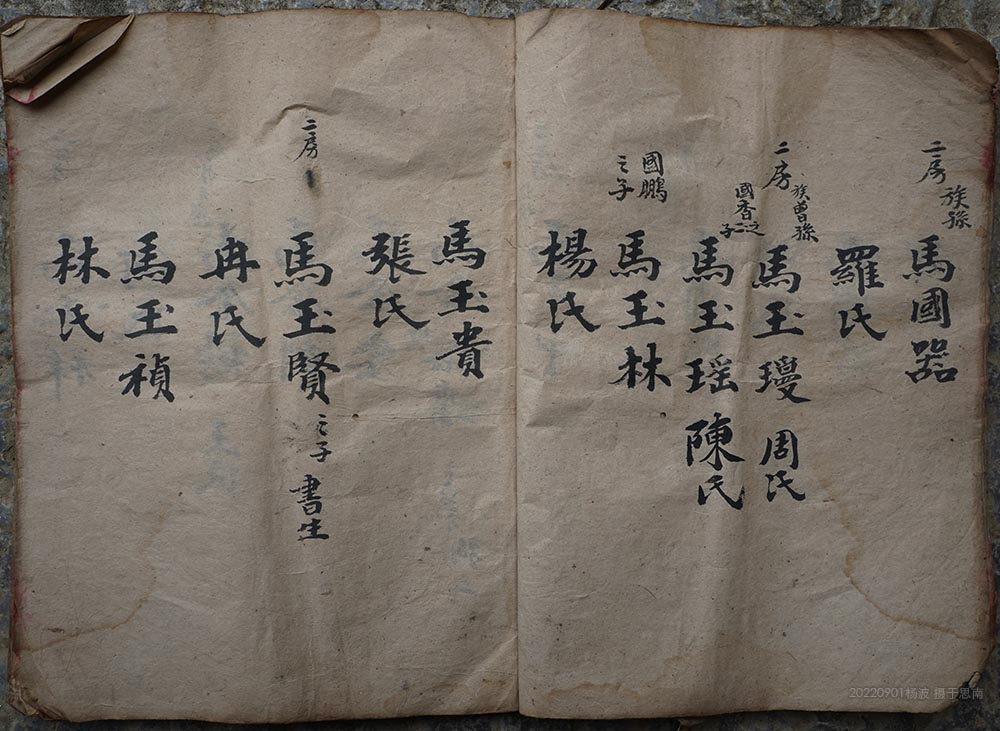 二房
族孫
馬國器
羅氏
二房
族曾孫
馬玉璦 周氏
國香之二子
馬玉瑤 陳氏
國鵬
之子
馬玉林
楊氏
馬玉貴
張氏
二房
馬玉賢之子書生
冉氏
馬玉禎
林氏
20220901杨波 摄于思南